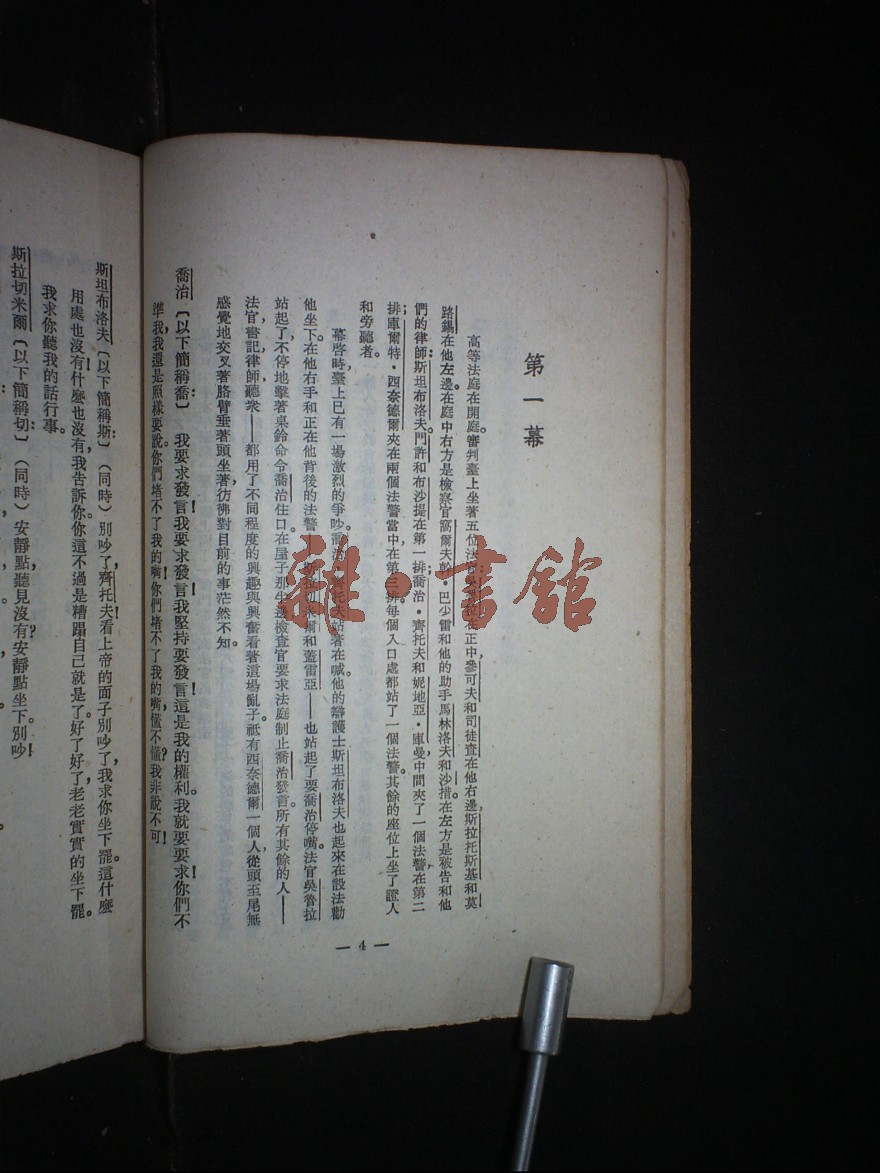 第一幕
高等法庭在開庭。審判臺上坐著五位法官。吳魯拉在正中，參可夫和司徒查在他右邊，斯拉托斯基和莫
路錫在他左邊。在庭中右方是檢察官窩爾夫幹·巴少雷和他的助手馬林洛夫和沙措。在左方是被告和他
們的律師：斯坦布洛夫、門許和布沙提在第一排，喬治·齊托夫和妮地亞·庫曼中間夾了一個法警，在第二
排；庫爾特·西奈德爾夾在兩個法警當中，在第三排。每個入口處都站了一個法警。其餘的座位上坐了證人
和旁聽者。
幕啓時，臺上已有一場激烈的爭吵。喬治·齊托夫站著在喊，他的辯護士斯坦布洛夫也起來在設法勸
他坐下。在他右手和正在他背後的法警——斯拉切米爾和蓋雷亞——也站起了，要喬治停嘴。法官吳魯拉
站起了，不停地擊著桌鈴，命令喬治住口。在屋子那半邊檢查官要求法庭制止喬治發言。所有其餘的人——
法官、書記、律師、聽衆——都用了不同程度的興趣與興奮看著這場亂子。祇有西奈德爾一個人，從頭至尾無
感覺地交叉著胳臂，垂著頭坐著，彷彿對目前的事茫然不知。
喬治〔以下簡稱喬〕：我要求發言！我要求發言！我堅持要發言！這是我的權利。我就要要求！你們不
準我，我還是照樣要說。你們堵不了我的嘴！你們堵不了我的嘴，懂不懂？我非說不可！
斯坦布洛夫〔以下簡稱斯〕：（同時）別吵了，齊托夫！看上帝的面子別吵了。我求你坐下罷。這什麼
用處也沒有！什麼也沒有，我告訴你。你這不過是糟蹋自己就是了。好了，好了，老老實實的坐下罷。
我求你聽我的話行事。
斯拉切米爾〔以下簡稱切〕：（同時）安靜點，聽見沒有？安靜點！坐下。別吵！
— 4 —
雜·書館